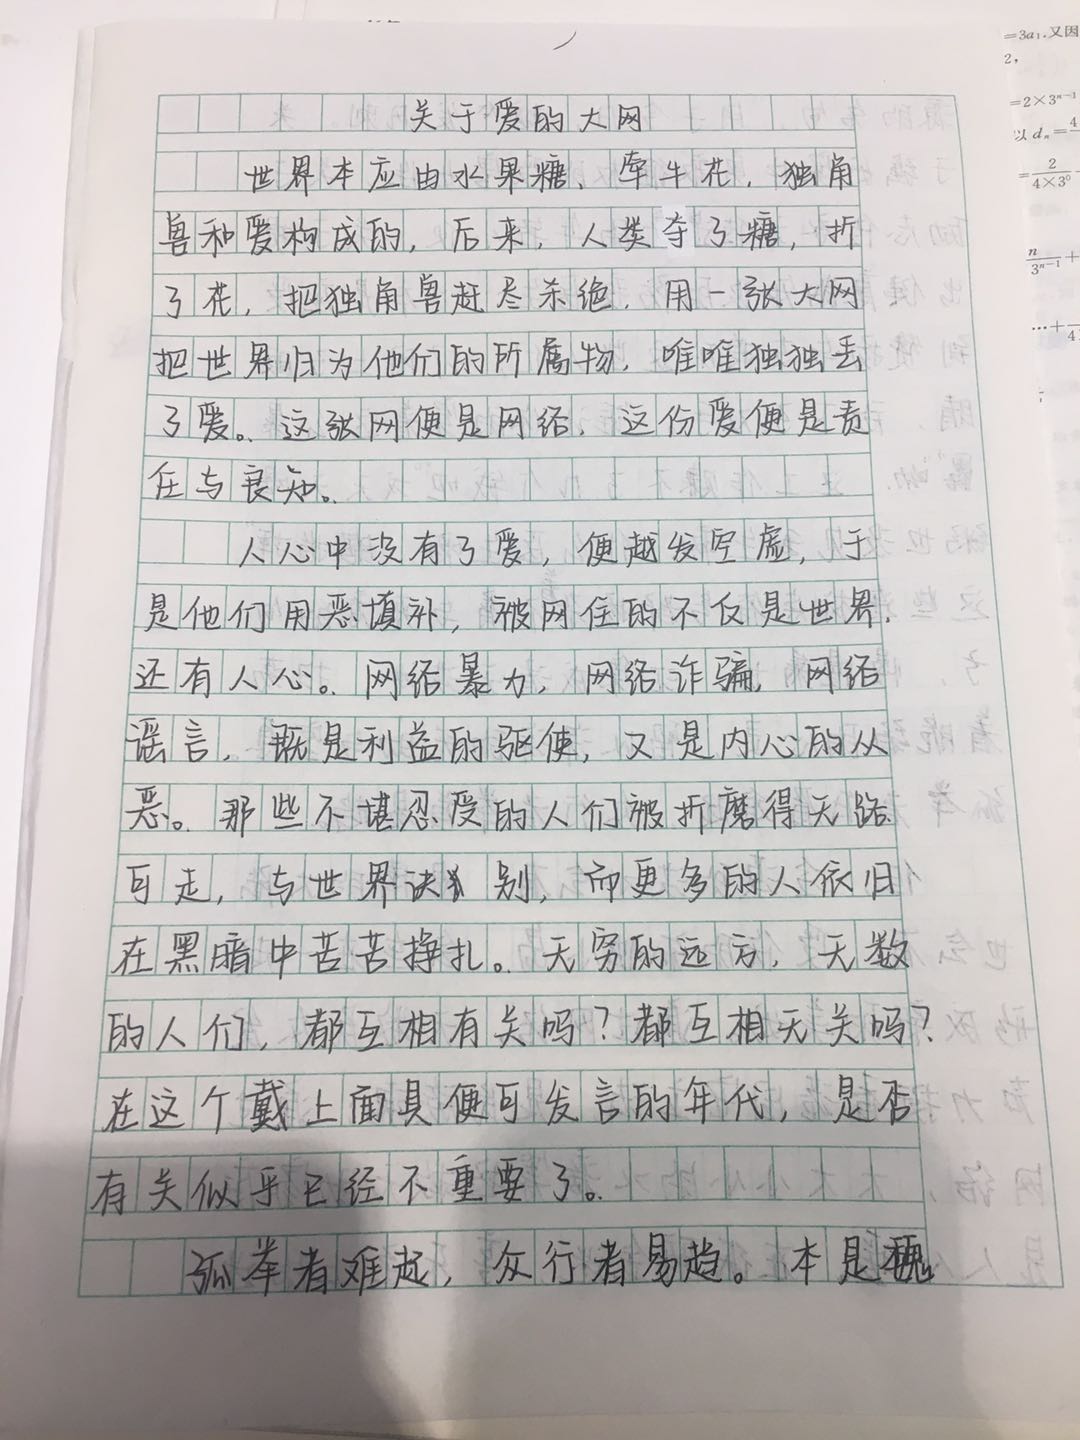 关于爱的大网
世界本应由水果糖、牵牛花，独角
兽和爱构成的，后来，人类夺了糖，折
了花，把独角兽赶尽杀绝，用一张大网
把世界归为他们的所属物，唯唯独独丢
了爱。这张网便是网络，这份爱便是责
任与良知。
人心中没有了爱，便越发空虚，于
是他们用恶填补，被网住的不仅是世界，
还有人心。网络暴力，网络诈骗，网络
谣言，既是利益的驱使，又是内心的从
恶。那些不堪忍受的人们被折磨得无路
可走，与世界诀别，而更多的人依旧
在黑暗中苦苦挣扎。无穷的远方，无数
的人们，都互相有关吗？都互相无关吗？
在这个戴上面具便可发言的年代，是否
有关似乎已经不重要了。
孤举者难起，众行者易趋。本是
=3a₁.又因
2,
=2×3ⁿ⁻¹
以 dₙ=4
=2/(4×3⁰)
n/3ⁿ⁻¹+
…+